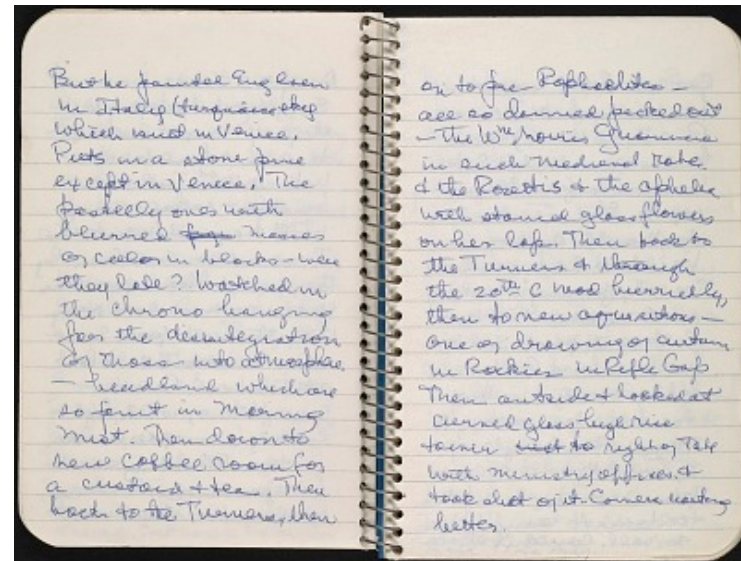 But he painted England
in Italy (turquoise sky
which isn't in Venice.
Puts in a stone pine
except in Venice. The
pastelly ones with
blurred masses
of color in blocks – were
they late? Watched in
the chrono hanging
for the disintegration
of those into atmosphere
– headland which are
so faint in morning
mist. Then down to
new coffee room for
a custard & tea. Then
back to the Turners, then
on to pre-Raphaelites –
all so damned packed out
– the Wm Morris Guinevere
in such medieval robe
& the Rosettis & the Ophelia
with stained glass flowers
on her lap. Then back to
the Turners & through
the 20th C mod hurriedly,
then to new aquisitions –
one of drawing of curtain
in Rockies in Rifle Gap
Then outside & looked at
curved glass high rise
tower to right of Tate
with ministry offices &
took shot of it. Camera working
better.